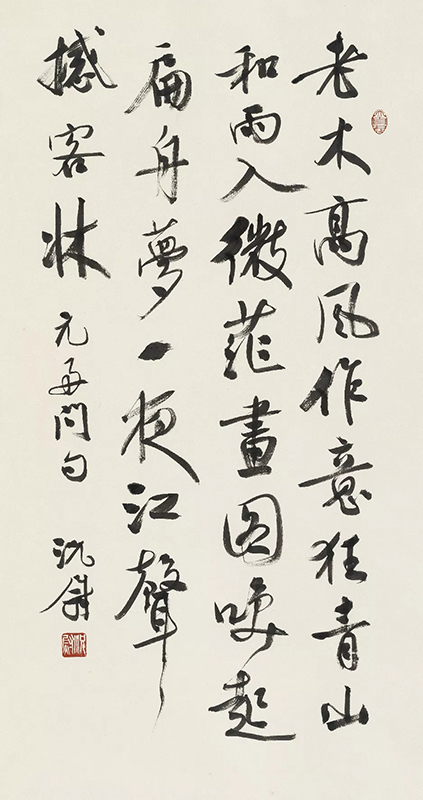 老木高風作意狂青山
和雨入微茫畫圖喚起
扁舟夢一夜江聲
撼客牀 元好問句 沈鵬